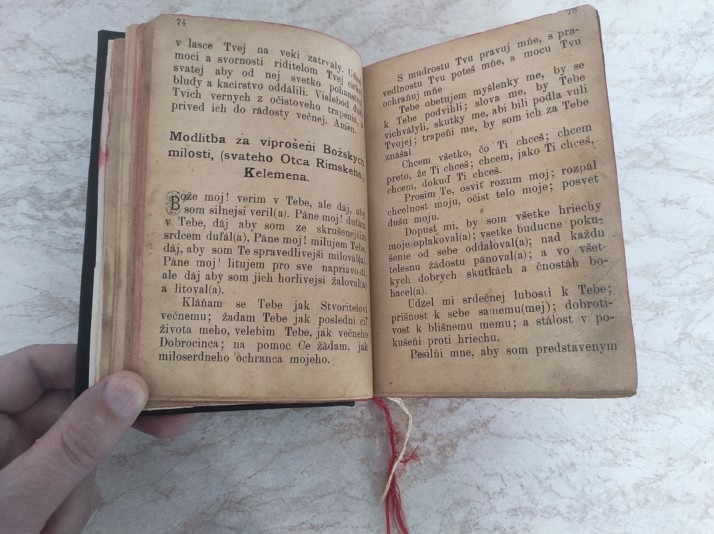 74
v lasce Tvej na veki zatrvály. Udel
moci a svornosti riditelom Tvej cirkve
svatej aby od nej svetko pohanstvo
bludy a kacírstvo oddálili. Vislebod duše
Tvich vernych z očistoveho trapenia, a
prived ich do rádosty večnej. Amen.
Modlitba za viprošeňi Božskych
milosti, (svateho Otca Rimskeho)
Kelemena.
Bože moj! verim v Tebe, ale dáj, aby
som silnejsi veril(a). Páne moj! dufám
v Tebe, dáj aby som ze skrušenejšim
srdcem dufál(a), Páne moj! milujem Tebe,
dáj, aby som Te spravedlivejši miloval(a),
Páne moj! litujem pro sve napriavo
ale dáj aby som jich horlivejsi žáloval(a)
a litoval(a).
Kláňam se Tebe jak Stvoritelovi
večnemu; žadam Tebe jak poslední cil
života meho, velebim Tebe, jak večneho
Dobrocinca; na pomoc Ce žádam, jak
miloserdneho ochranca mojeho.
75
S mudrostu Tvu pravuj mňe, s pra-
vedlnostu Tvu poteš mňe, s mocu Tvu
ochraňuj mňe
Tebe obetujem myšlenky me, by se
k Tebe podvihli; slova me, by Tebe
vichvályli, skutky me, abi bili podla vuli
Tvojej; trapeňi me, by som ich za Tebe
znášal
Chcem všetko, čo Ti chceš; chcem
preto, že Ti chceš; chcem, jako Ti chceš,
chcem, dokuď Ti chceš.
Prosim Te, osviť rozum moj; rozpál
chcelnost moju, očist telo moje; posvet
dušu moju.
Dopust mi, by som všetke hriechy
moje oplakoval(a); vsetke buducne poku-
šenie od sebe oddaloval(a); nad každu
telesnu žádostu pánoval(a); a vo všet-
kych dobrych skutkách a čnostáh bo-
hacel(a).
Udzel mi srdečnej lubosti k Tebe;
prišnost k sebe samemu(mej); dobroti-
vost k blišnemu memu; a stálost v po-
kušeňi proti hriechu.
Pesilňi mne, aby som predstavenym